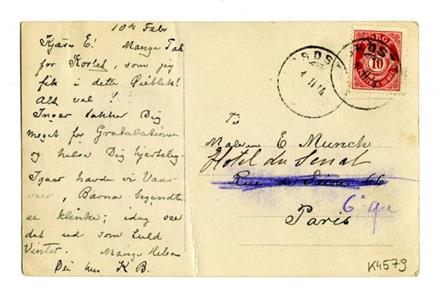 10de Febr
Kjære E! Mange Tak
for Kortet, som jeg
fik i dette Øieblik!
Alt vel!
Inger takker Dig
meget for Gratulationen
og hilser Dig hjertelig.
Igaar havde vi Vaar
veir, Barna begyndte
at klinke; idag ser
det ud som fuld
Vinter. Mange Hilsen
K B.
NORGE
10
To
E Munch
Hotel du Senat
Rue de Seine 66
6e
Paris
K4579